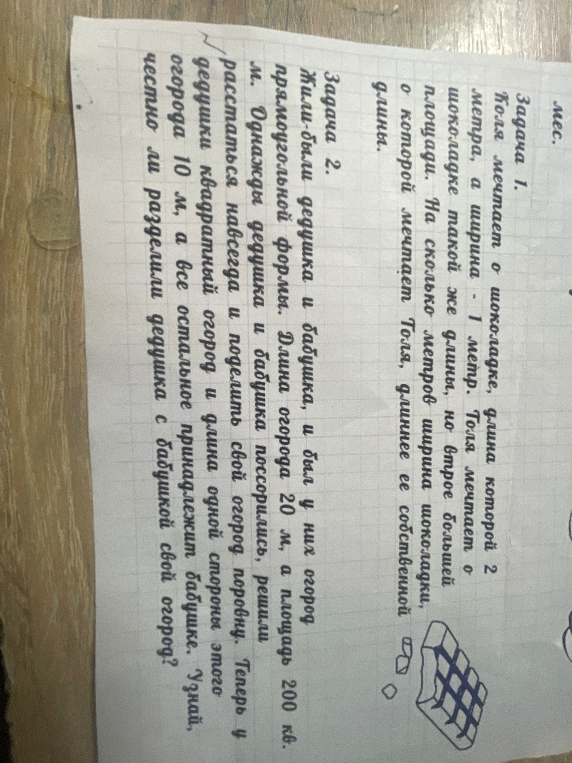 мес.
Задача 1.
Коля мечтает о шоколадке, длина которой 2
метра, а ширина - 1 метр. Толя мечтает о
шоколадке такой же длины, но втрое большей
площади. На сколько метров ширина шоколадки,
о которой мечтает Толя, длиннее ее собственной
длины.
Задача 2.
Жили-были дедушка и бабушка, и был у них огород
прямоугольной формы. Длина огорода 20 м, а площадь 200 кв.
м. Однажды дедушка и бабушка поссорились, решили
расстаться навсегда и поделить свой огород поровну. Теперь у
дедушки квадратный огород и длина одной стороны этого
огорода 10 м, а все остальное принадлежит бабушке. Узнай,
честно ли разделили дедушка с бабушкой свой огород?